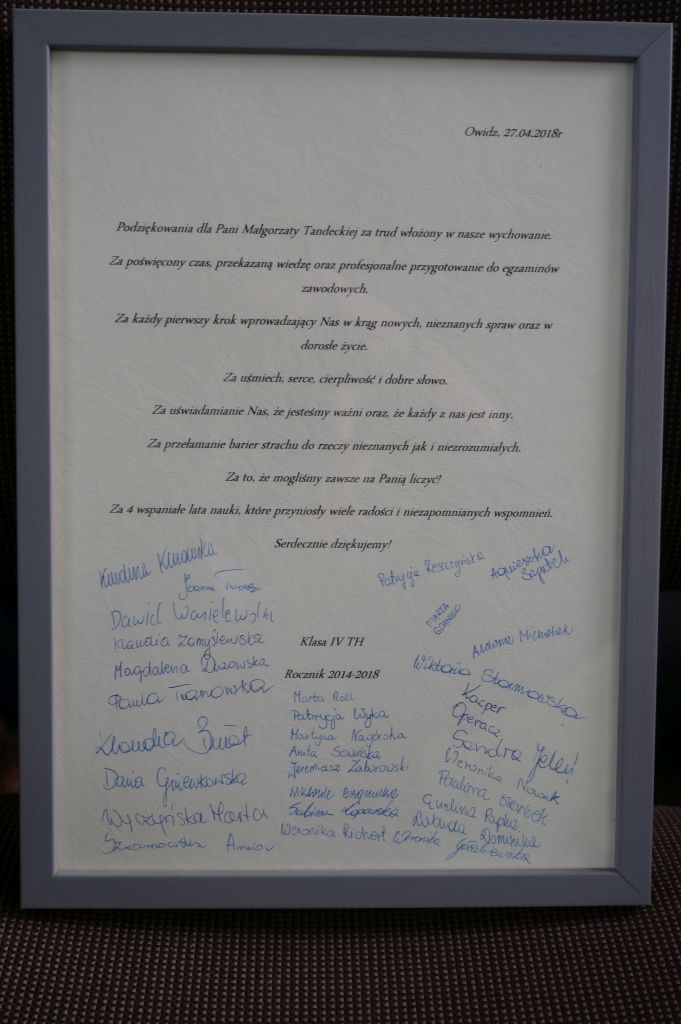 Owidz, 27.04.2018r
Podziękowania dla Pani Małgorzaty Tandeckiej za trud włożony w nasze wychowanie.
Za poświęcony czas, przekazaną wiedzę oraz profesjonalne przygotowanie do egzaminów
zawodowych.
Za każdy pierwszy krok wprowadzający Nas w krąg nowych, nieznanych spraw oraz w
dorosłe życie.
Za uśmiech, serce, cierpliwość i dobre słowo.
Za uświadamianie Nas, że jesteśmy ważni oraz, że każdy z nas jest inny.
Za przełamanie barier strachu do rzeczy nieznanych jak i niezrozumiałych.
Za to, że mogliśmy zawsze na Panią liczyć!
Za 4 wspaniałe lata nauki, które przyniosły wiele radości i niezapomnianych wspomnień.
Serdecznie dziękujemy!
Karolina
Joanna
Dawid Wasielewski
Klaudia Zamyślewska
Magdalena
Paula
Klaudia
Daria Gniewkowska
Wyczapińska Marta
Klasa IV TH
Rocznik 2014-2018
Marta Roll
Patrycja Wyka
Martyna Nagórska
Anita
Jeremiasz Zaborowski
Sabina
Weronika Richert
Patrycja Reszczyńska
Agnieszka
MARTA
GDANIEC
Wiktoria
Kacper
Operacz
Sandra Jeleń
Weronika Nowak
Paulina
Ewelina
Dominika
Weronika